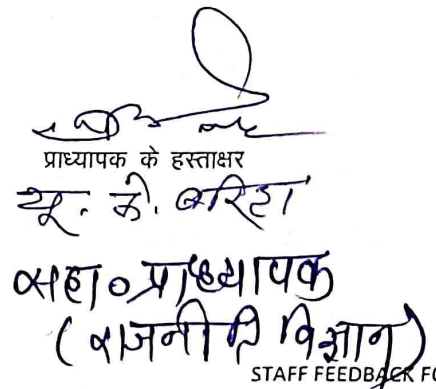 प्राध्यापक के हस्ताक्षर
यू. के. बरिहा
सहा० प्राध्यापक
(राजनीति विज्ञान)
STAFF FEEDBACK FO